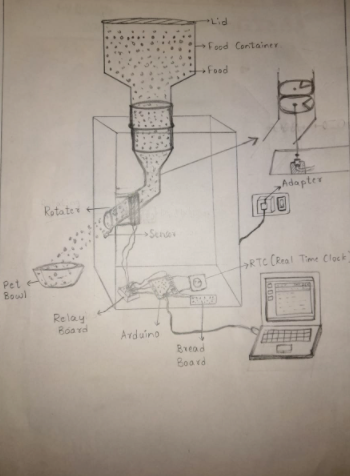 Lid
Food Container
Food
Adapter
Rotater
Sensor
RTC (Real Time Clock)
Pet
Bowl
Relay
Board
Arduino
Bread
Board